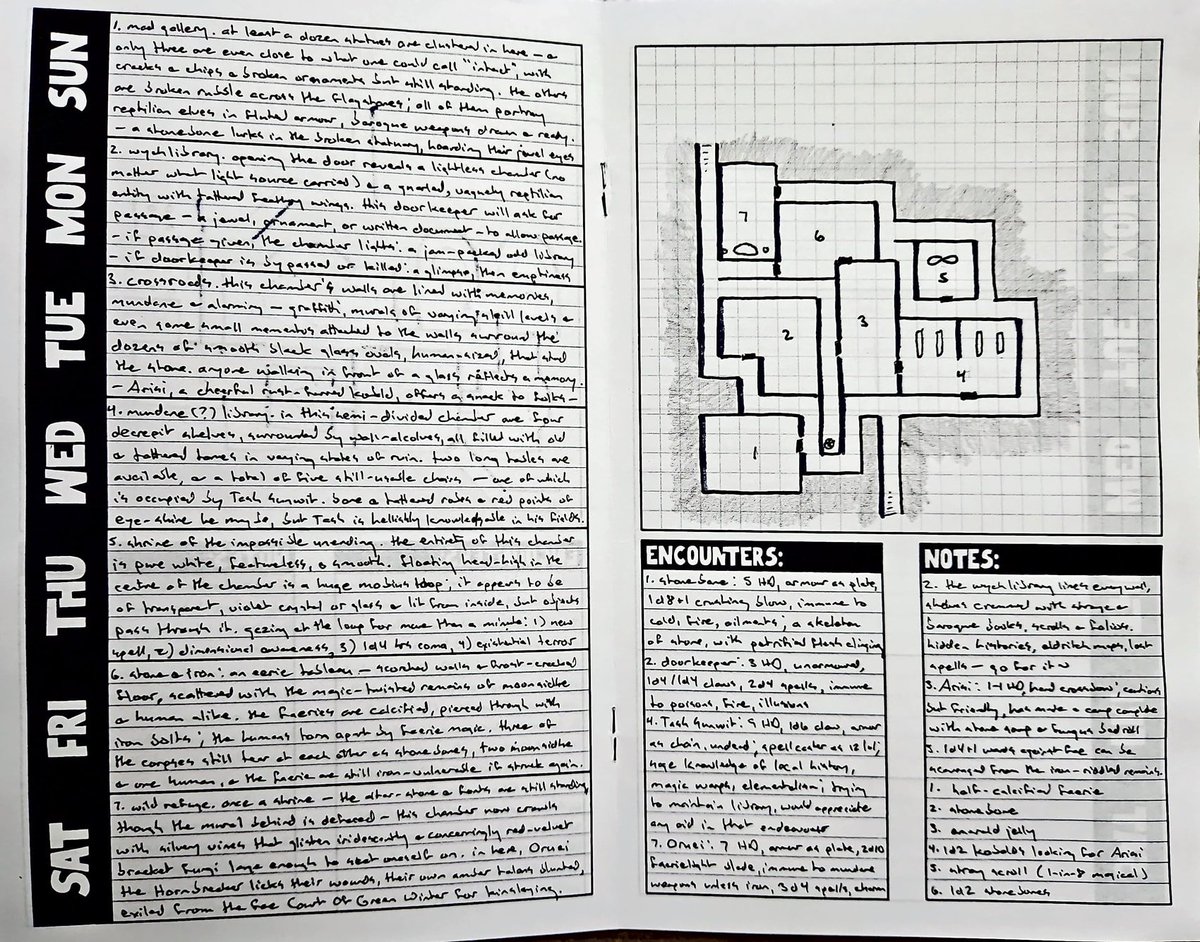 SUN
MON
TUE
WED
THU
FRI
SAT
1. mad gallery. at least a dozen statues are clustered in here – &
only three are even close to what one could call "intact", with
cracks & chips & broken ornaments but still standing. the others
are broken rubble across the flagstones; all of them portray
reptilian elves in fluted armour, baroque weapons drawn & ready.
– a stonebone lurks in the broken statuary, hoarding their jewel eyes
2. wych library. opening the door reveals a lightless chamber (no
matter what light source carried) & a gnarled, vaguely reptilian
entity with tattered feathery wings. this doorkeeper will ask for
passage – a jewel, ornament, or written document – to allow passage.
– if passage given, the chamber lights: a jam-packed odd library
– if doorkeeper is bypassed or killed: a glimpse, then emptiness
3. crossroads. this chamber's walls are lined with memories,
mundane & alarming – graffiti, murals of varying skill levels &
even some small mementos attached to the walls surround the
dozens of smooth black glass ovals, human-sized, that stud
the stone. anyone walking in front of a glass reflects a memory.
– Arisi, a cheerful rust-furred kobold, offers a snack to folks –
4. mundane (?) library. in this semi-divided chamber are four
decrepit shelves, surrounded by wall-alcoves, all filled with old
& tattered tomes in varying states of ruin. two long tables are
available, & a total of five still-usable chairs – one of which
is occupied by Tash Sunwit. bone & tattered robes & red points of
eye-shine he may be, but Tash is hellishly knowledgable in his fields.
5. shrine of the impossible unending. the entirety of this chamber
is pure white, featureless, & smooth. floating head-high in the
centre of the chamber is a huge mobius loop; it appears to be
of transparent, violet crystal or glass & lit from inside, but objects
pass through it. gazing at the loop for more than a minute: 1) new
spell, 2) dimensional awareness, 3) 1d4 hrs coma, 4) existential terror
6. stone & iron: an eerie tableau – scorched walls & frost-cracked
floor, scattered with the magic-twisted remains of moonsidhe
& human alike. the faeries are calcified, pierced through with
iron bolts; the humans torn apart by faerie magic. three of
the corpses still tear at each other as stonebones, two moonsidhe
& one human, & the faerie are still iron-vulnerable if struck again.
7. wild refuge. once a shrine – the altar-stone & fonts are still standing,
though the mural behind is defaced – this chamber now crawls
with silvery vines that glisten iridescently & concerningly red-velvet
bracket fungi large enough to seat oneself on. in here, Oruei
the Hornbreaker licks their wounds, their own amber talons blunted,
exiled from the Fae Court of Green Winter for kinslaying.
7
6
5
2
3
4
1
ENCOUNTERS:
1. stonebone: 5 HD, armour as plate,
1d8+1 crushing blow, immune to
cold, fire, ailments; a skeleton
of stone, with petrified flesh clinging
2. doorkeeper: 3 HD, unarmoured,
1d4/1d4 claws, 2d4 spells, immune
to poisons, fire, illusions
4. Tash Sunwit: 9 HD, 1d6 claw, armor
as chain, undead; spellcaster as 12 lvl;
huge knowledge of local history,
magic warps, elementalism; trying
to maintain library, would appreciate
any aid in that endeavour
7. Oruei: 7 HD, armor as plate, 2d10
faerielight blade, immune to mundane
weapons unless iron, 3d4 spells, charm
NOTES:
2. the wych library lines every wall,
shelves crammed with strange &
baroque books, scrolls & folios.
hidden histories, eldritch maps, lost
spells – go for it~
3. Arisi: 1-1 HD, hand crossbow; cautious
but friendly, has made a camp complete
with stone soup & fungus bedroll
5. 1d4+1 wards against fae can be
scavenged from the iron-riddled remains.
1. half-calcified faerie
2. stonebone
3. emerald jelly
4. 1d2 kobolds looking for Arisi
5. stray scroll (1-in-8 magical)
6. 1d2 stonebones